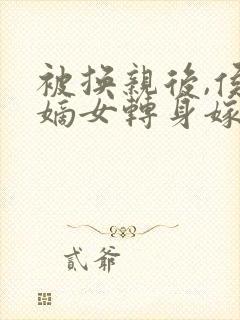 被換親後,侯
嫡女轉身嫁
貳爺